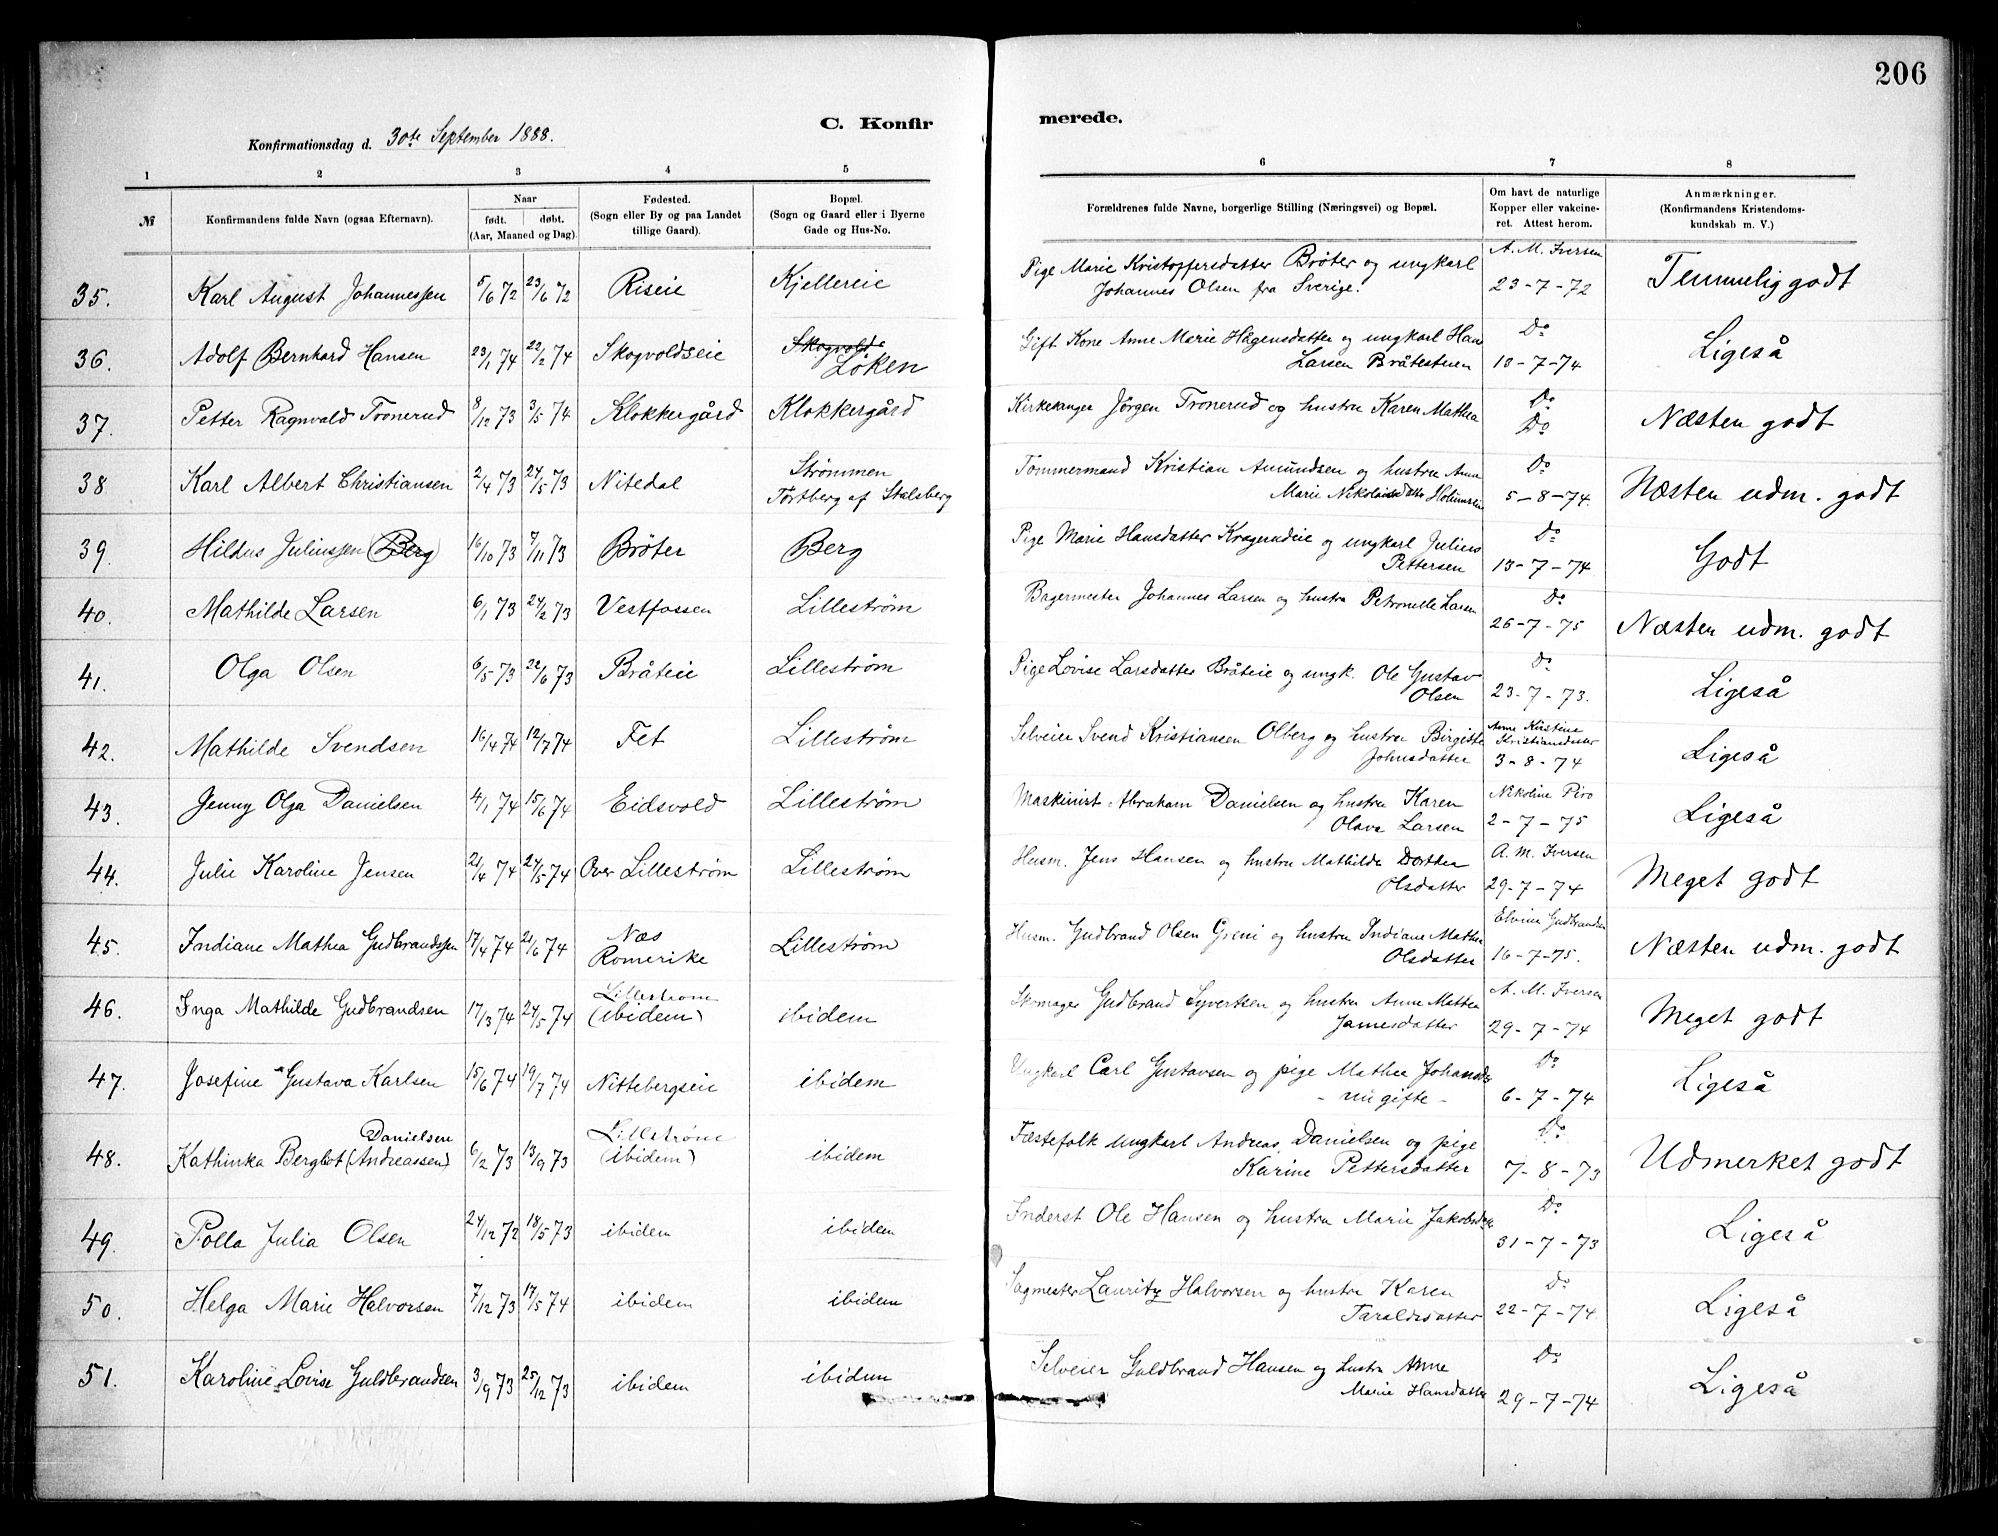 206
C. Konfir
merede.
Konfirmationsdag d. 30te September 1888.
1 2 3 4 5 6 7 8
№
Konfirmandens fulde Navn (ogsaa Efternavn).
Naar
født. døbt.
(Aar, Maaned og Dag).
Fødested.
(Sogn eller By og paa Landet
tillige Gaard).
Bopæl.
(Sogn og Gaard eller i Byerne
Gade og Hus-No.
Forældrenes fulde Navne, borgerlige Stilling (Næringsvei) og Bopæl.
Om havt de naturlige
Kopper eller vakcine-
ret. Attest herom.
Anmærkninger.
(Konfirmandens Kristendoms-
kundskab m. V.)
35. Karl August Johannessen 5/6 72 23/6 72 Riseie Kjellereie Pige Marie Kristoffersdatter Brøter og ungkarl A. M. Iversen Temmelig godt
Johannes Olsen fra Sverige. 23-7-72
36. Adolf Bernhard Hansen 23/1 74 22/2 74 Skogvoldseie Skogvolds Gift Kone Anne Marie Hågensdatter og ungkarl Hans Do Ligeså
Løken Larsen Bråtestuen 10-7-74
37. Petter Ragnvald Tronerud 8/12 73 3/5 74 Klokkergård Klokkergård Kirkesanger Jörgen Tronerud og hustru Karen Mathea Do Næsten godt
Do
38 Karl Albert Christiansen 2/4 73 24/5 73 Nitedal Strömmen Tømmermand Kristian Amundsen og hustru Anne Do Næsten udm. godt
Tortberg af Stalsberg Marie Nikolaisdatter 5-8-74.
39. Hildus Juliussen (Berg) 16/10 73 7/11 73 Brøter Berg Pige Marie Hansdatter Kragerudeie og ungkarl Julius Do Godt
Pettersen 13-7-74
40. Mathilde Larsen 6/1 73 24/2 73 Vestfossen Lilleström Bagermester Johannes Larsen og hustru Petronelle Larsen Do Næsten udm. godt
26-7-75
41. Olga Olsen 6/5 73 22/6 73 Bråteie Lilleström Pige Lovise Larsdatter Bråteie og ungk. Ole Gustav Do Ligeså
Olsen 23-7-73.
42. Mathilde Svendsen 16/4 74 12/7 74 Fet Lilleström Selveier Svend Kristiansen Olberg og hustru Birgitte Anne Kristine Ligeså
Johnsdatter Kristiansdatter
3-8-74
43. Jenny Olga Danielsen 4/1 74 15/6 74 Eidsvold Lilleström Maskinist Abraham Danielsen og hustru Karen Nikoline Piro Ligeså
Olava Larsen 2-7-75
44. Julie Karoline Jensen 21/4 74 24/5 74 Over Lilleström Lilleström Husm. Jens Hansen og hustru Mathilde Dorthea A. M. Iversen Meget godt
Olsdatter 29-7-74
45. Indiane Mathea Gudbrandssen 17/4 74 21/6 74 Næs Lilleström Husm. Gudbrand Olsen Greni og hustru Indiane Mathea Elvine Gudbrandsen Næsten udm. godt
Romerike Olsdatter 16-7-75.
46. Inga Mathilde Gudbrandsen 17/3 74 24/5 74 Lilleström ibidem Skomager Gudbrand Syvertsen og hustru Anne Mathea A. M. Iversen Meget godt
(ibidem) Jamesdatter 29-7-74
47. Josefine Gustava Karlsen 15/6 74 19/7 74 Nittebergseie ibidem Ungkarl Carl Gustavsen og pige Mathea Johansdr Do Ligeså
- nu gifte - 6-7-74
48. Kathinka Bergliot (Andreassen) Danielsen 6/2 73 13/9 73 Lilleström (ibidem) ibidem Fæstefolk ungkarl Andreas Danielsen og pige Do Udmerket godt
Karine Pettersdatter 7-8-73
49. Polla Julia Olsen 24/12 72 18/5 73 ibidem ibidem Inderst Ole Hansen og hustru Marie Jakobsdr Do Ligeså
31-7-73
50. Helga Marie Halvorsen 7/12 73 17/5 74 ibidem ibidem Sagmester Lauritz Halvorsen og hustru Karen Do Ligeså
Taraldsdatter 22-7-74.
51. Karoline Lovise Guldbrandsen 3/9 73 25/12 73 ibidem ibidem Selveier Guldbrand Hansen og hustru Anne Do Ligeså
Marie Hansdatter 29-7-74